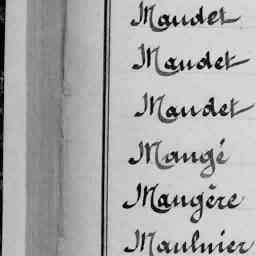 Maudet
Maudet
Maudet
Maugé
Maugère
Maulnier